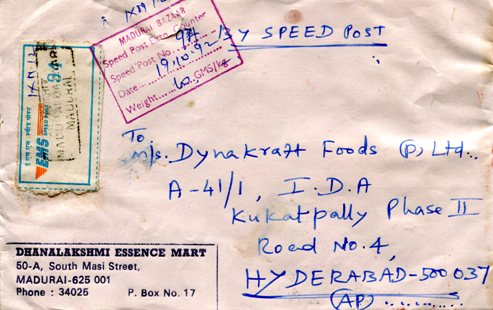 BY SPEED POST
MADURAI BAZAAR
Speed Post Counter
Speed Post No. 94
Date 19.10.92
Weight GMS/kg
EMS SPEED POST
MADURAI
To
M/s. Dynakraft Foods (P) Ltd.
A-41/1, I.D.A
Kukatpally Phase II
Road No. 4,
HYDERABAD-500 037
(AP)
DHANALAKSHMI ESSENCE MART
50-A, South Masi Street,
MADURAI-625 001
Phone : 34025 P. Box No. 17